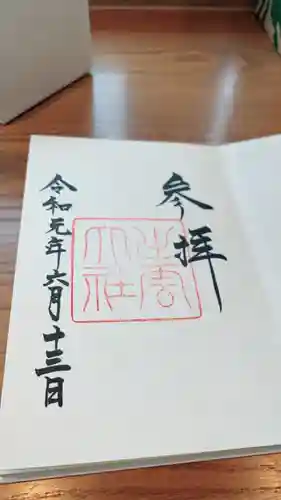 参拝
出雲大社
令和元年六月十三日